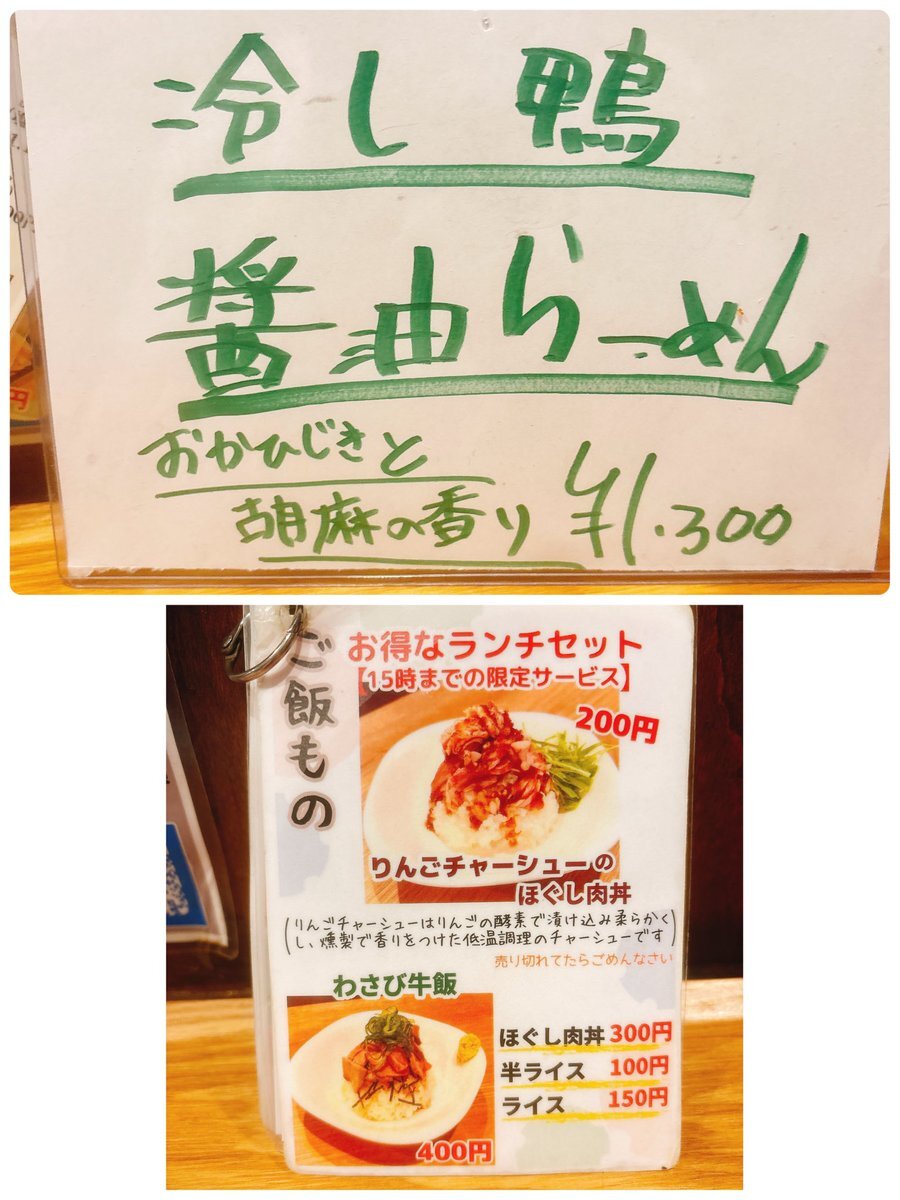 冷し鴨
醤油らーめん
おかひじきと
胡麻の香り ¥1.300
ご飯もの
お得なランチセット
【15時までの限定サービス】
200円
りんごチャーシューの
ほぐし肉丼
(りんごチャーシューはりんごの酵素で漬け込み柔らかく
し、燻製で香りをつけた低温調理のチャーシューです)
売り切れてたらごめんなさい
わさび牛飯
400円
ほぐし肉丼 300円
半ライス 100円
ライス 150円